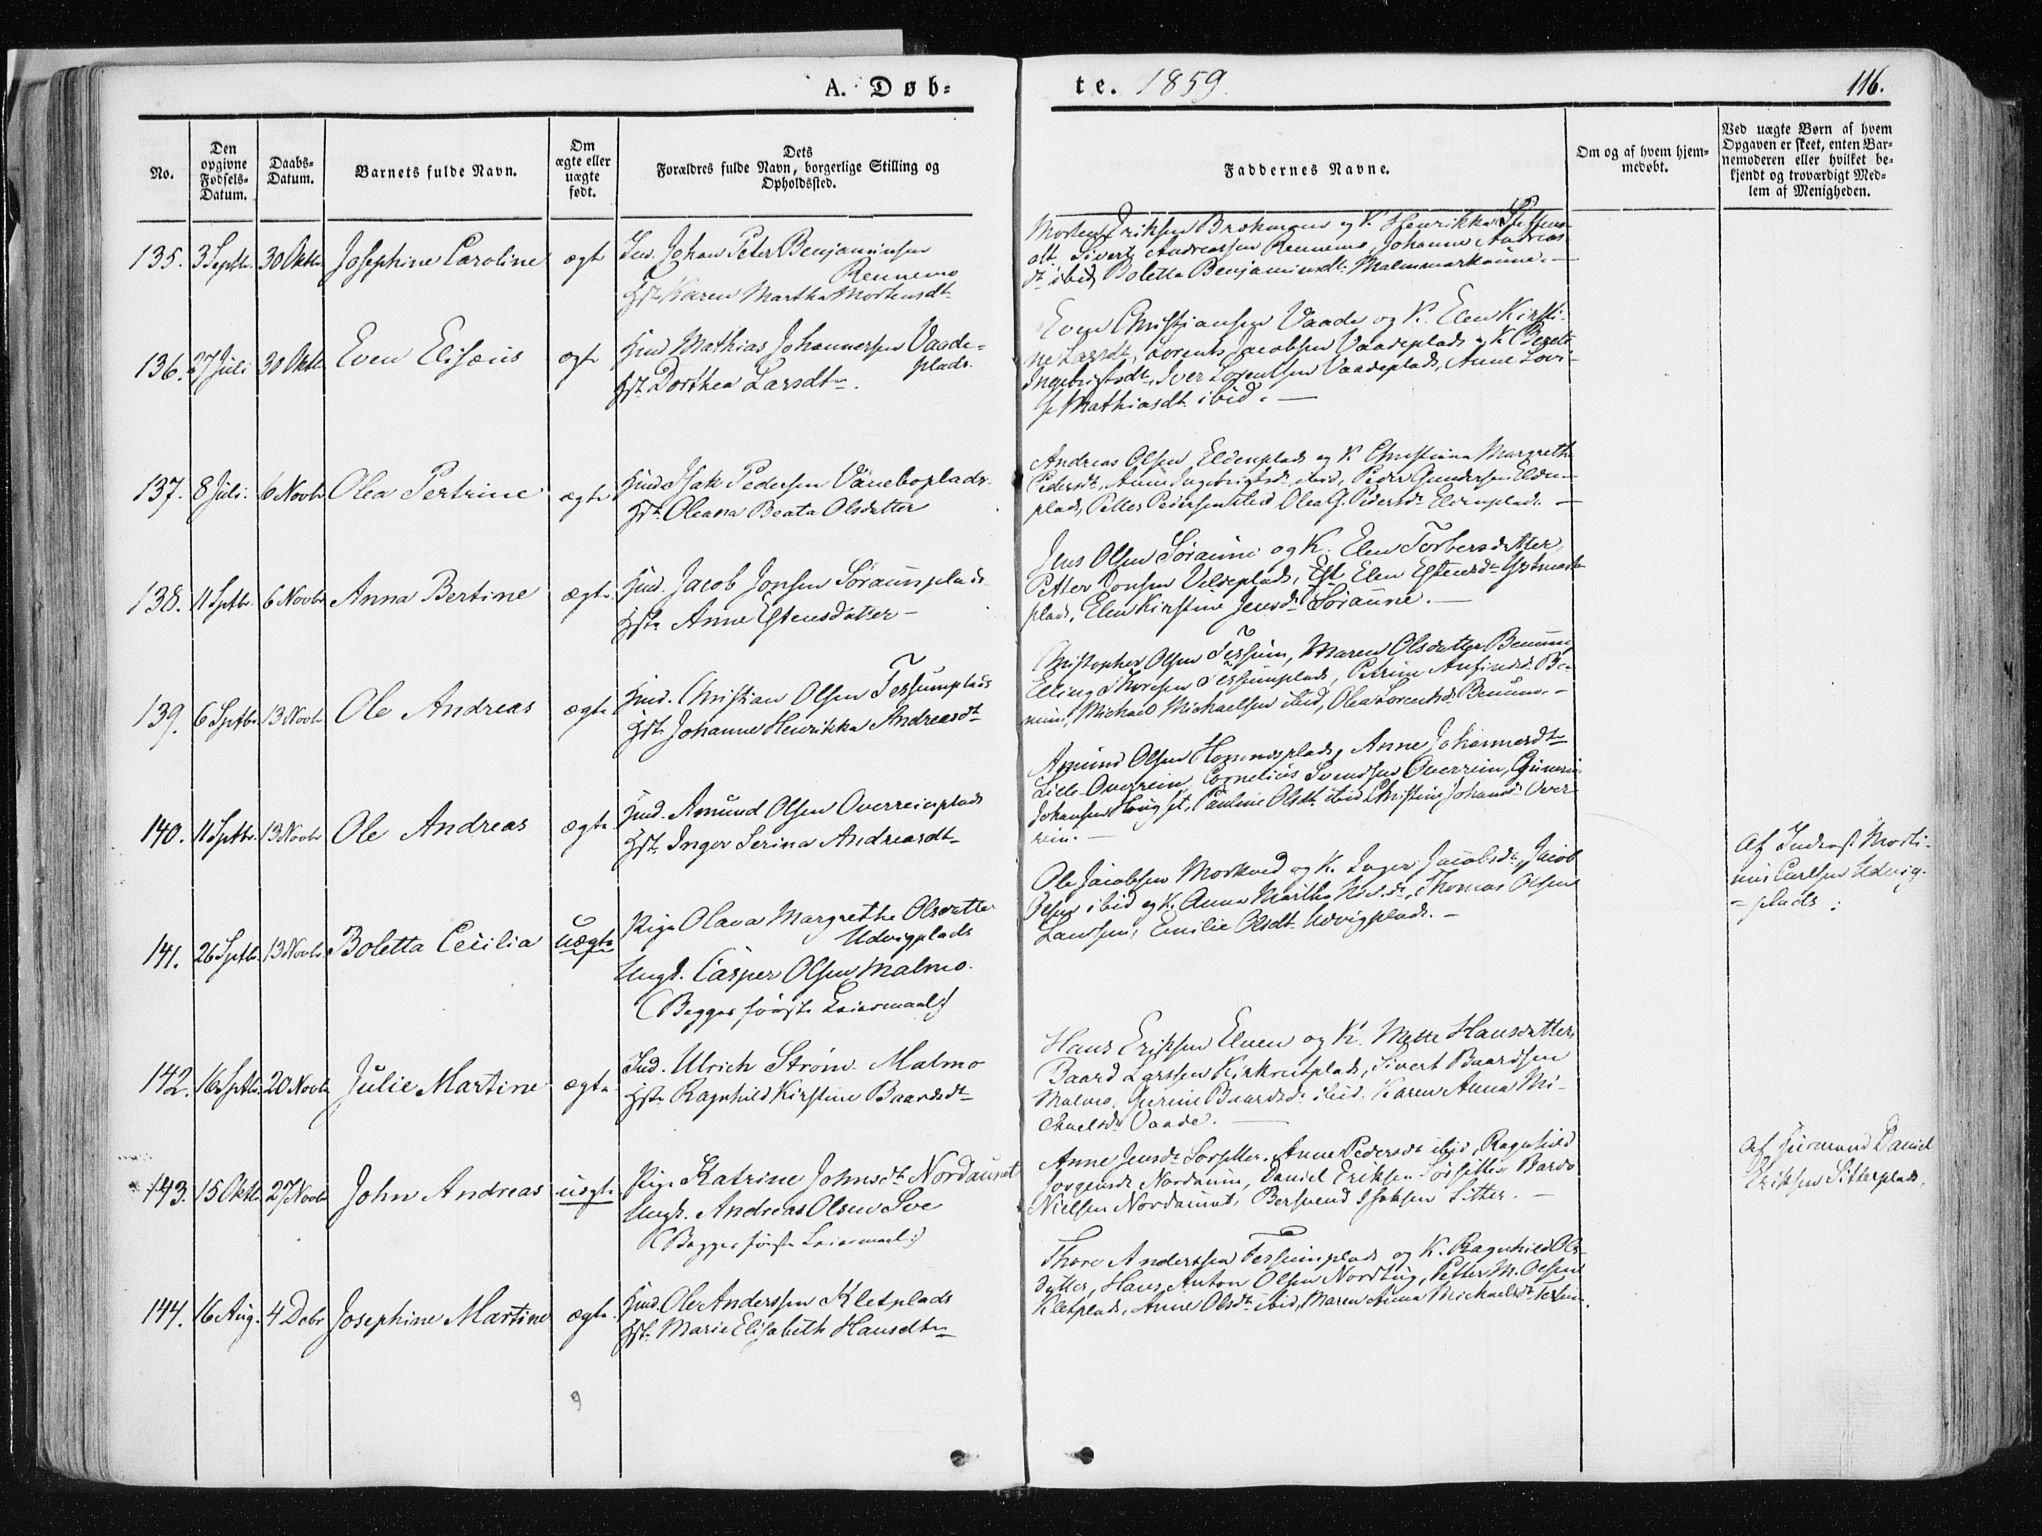 A. Døb-
te. 1859.
116.
No.
Den opgivne Fødsels-Datum.
Daabs-Datum.
Barnets fulde Navn.
Om ægte eller uægte født.
Dets Forældres fulde Navn, borgerlige Stilling og Opholdssted.
Faddernes Navne.
Om og af hvem hjem-medøbt.
Ved uægte Børn af hvem Opgaven er skeet, enten Bar-nemoderen eller hvilket be-kjendt og troværdigt Med-lem af Menigheden.
135. 3 Septbr 30 Oktbr Josephine Caroline ægte
Johan Peter Benjaminsen
Rennemo
Hst. Karen Martha Mortensdtr
Morten Eriksen og K. Henrikka
Sivert Andreassen Rennemo, Johanna Andreas-
dtr ibid, Boletta Benjaminsdtr
136. 27 Juli 30 Oktbr Even Elisæus ægte
Hmd Mathias Johannessen Vaade-
plads.
Hst. Dorthea Larsdtr.
Even Christiansen Vaade og K. Elen Kirsti-
ne Larsdtr, Lorents Jacobsen Vaadeplads og K. Berete
Ingebrigtsdtr, Iver Lorentsen Vaadeplads, Anne Lovi-
se Mathiasdtr ibid.
137. 8 Juli 6 Novbr Olea Petrine ægte
Hmd Isak Pedersen Vaneboplads
Hst. Oleana Beata Olsdatter
Andreas Olsen Eldenplads og K. Christiana Margrethe
Pedersdtr, Anne Ingebrigtsdtr ibid, Peder Gundersen Elden-
plads, Petter Pedersen ibid Olea G. Pedersdtr Eldenplads.
138. 11 Septbr. 6 Novbr Anna Bertine ægte
Hmd. Jacob Jonsen Søraunplads
Hst. Anne Estensdatter
Jens Olsen Søraune og K. Elen Torbersdatter,
Petter Jonsen Veldeplads, Elen Estensdtr
plads, Elen Kirstine Jensdtr Søraune.
139. 6 Septbr 13 Novbr Ole Andreas ægte
Hmd. Christian Olsen Tessumplads
Hst. Johanna Henrikka Andreasdtr
Christopher Olsen Tessum, Maren Olsdatter Benum,
Elling Thoresen Tessumplads, Petrine Anfindsdtr Be-
num, Michael Michaelsen ibid, Olea Lorentsdtr Benum.
140. 11 Septbr. 13 Novbr Ole Andreas ægte
Hmd. Amund Olsen Overreinplads
Hst. Inger Serina Andreasdtr
Amund Olsen Hammerplads, Anne Johannesdtr
Lille-Overrein, Cornelius Svendsen Overrein,
Johansen Pauline Olsdtr ibid Christine Johansdtr Over-
rein.
141. 26 Septbr. 13 Novbr Boletta Cecilia uægte
Pige Olava Margrethe Olsdatter
Udvigplads
Ungk. Casper Olsen Malmo.
(Begges første Leiermaal:)
Ole Jacobsen Morkved og K. Inger Jacobsdtr, Jacob
Olsen ibid og K. Anna Martha Thomas Olsen
Emilie Olsdtr Udvigplads.
Af Inderst Morti-
nus Carlsen Udvig-
plads
142. 16 Septbr. 20 Novbr Julie Martine ægte
Ind. Ulrich Strøm Malmo
Hst. Ragnhild Kirstine Baardsdtr
Hans Eriksen Elven og K. Mette Hansdatter,
Baard Larssen Sivert Baardsen
Malmo, Baardsdtr ibid. Karen Anna Mi-
chaelsdtr Vaade.
143. 15 Oktbr 27 Novbr John Andreas uægte
Pige Katrine Johnsdtr Nordaunet
Ungk. Andreas Olsen Sve
(Begges første Leiermaal:)
Anne Jensdtr Anne Pedersdtr ibid, Ragnhild
Jørgensdtr Nordaune, Daniel Eriksen
Nielsen Nordaunet, Bersvend Isaksen Sitter.
Af Daniel
Eriksen Sitterplads.
144. 16 Aug. 4 Debr Josephine Martine ægte
Hmd. Ole Anderssen Kletplads
Hst. Marie Elisabeth Hansdtr
Thore Anderssen Tessumplads og K. Ragnhild Ols-
datter, Hans Anton Olsen Nordtug, Petter M. Olsen
Kletplads, Anne Olsdtr ibid, Maren Anna Michaelsdtr